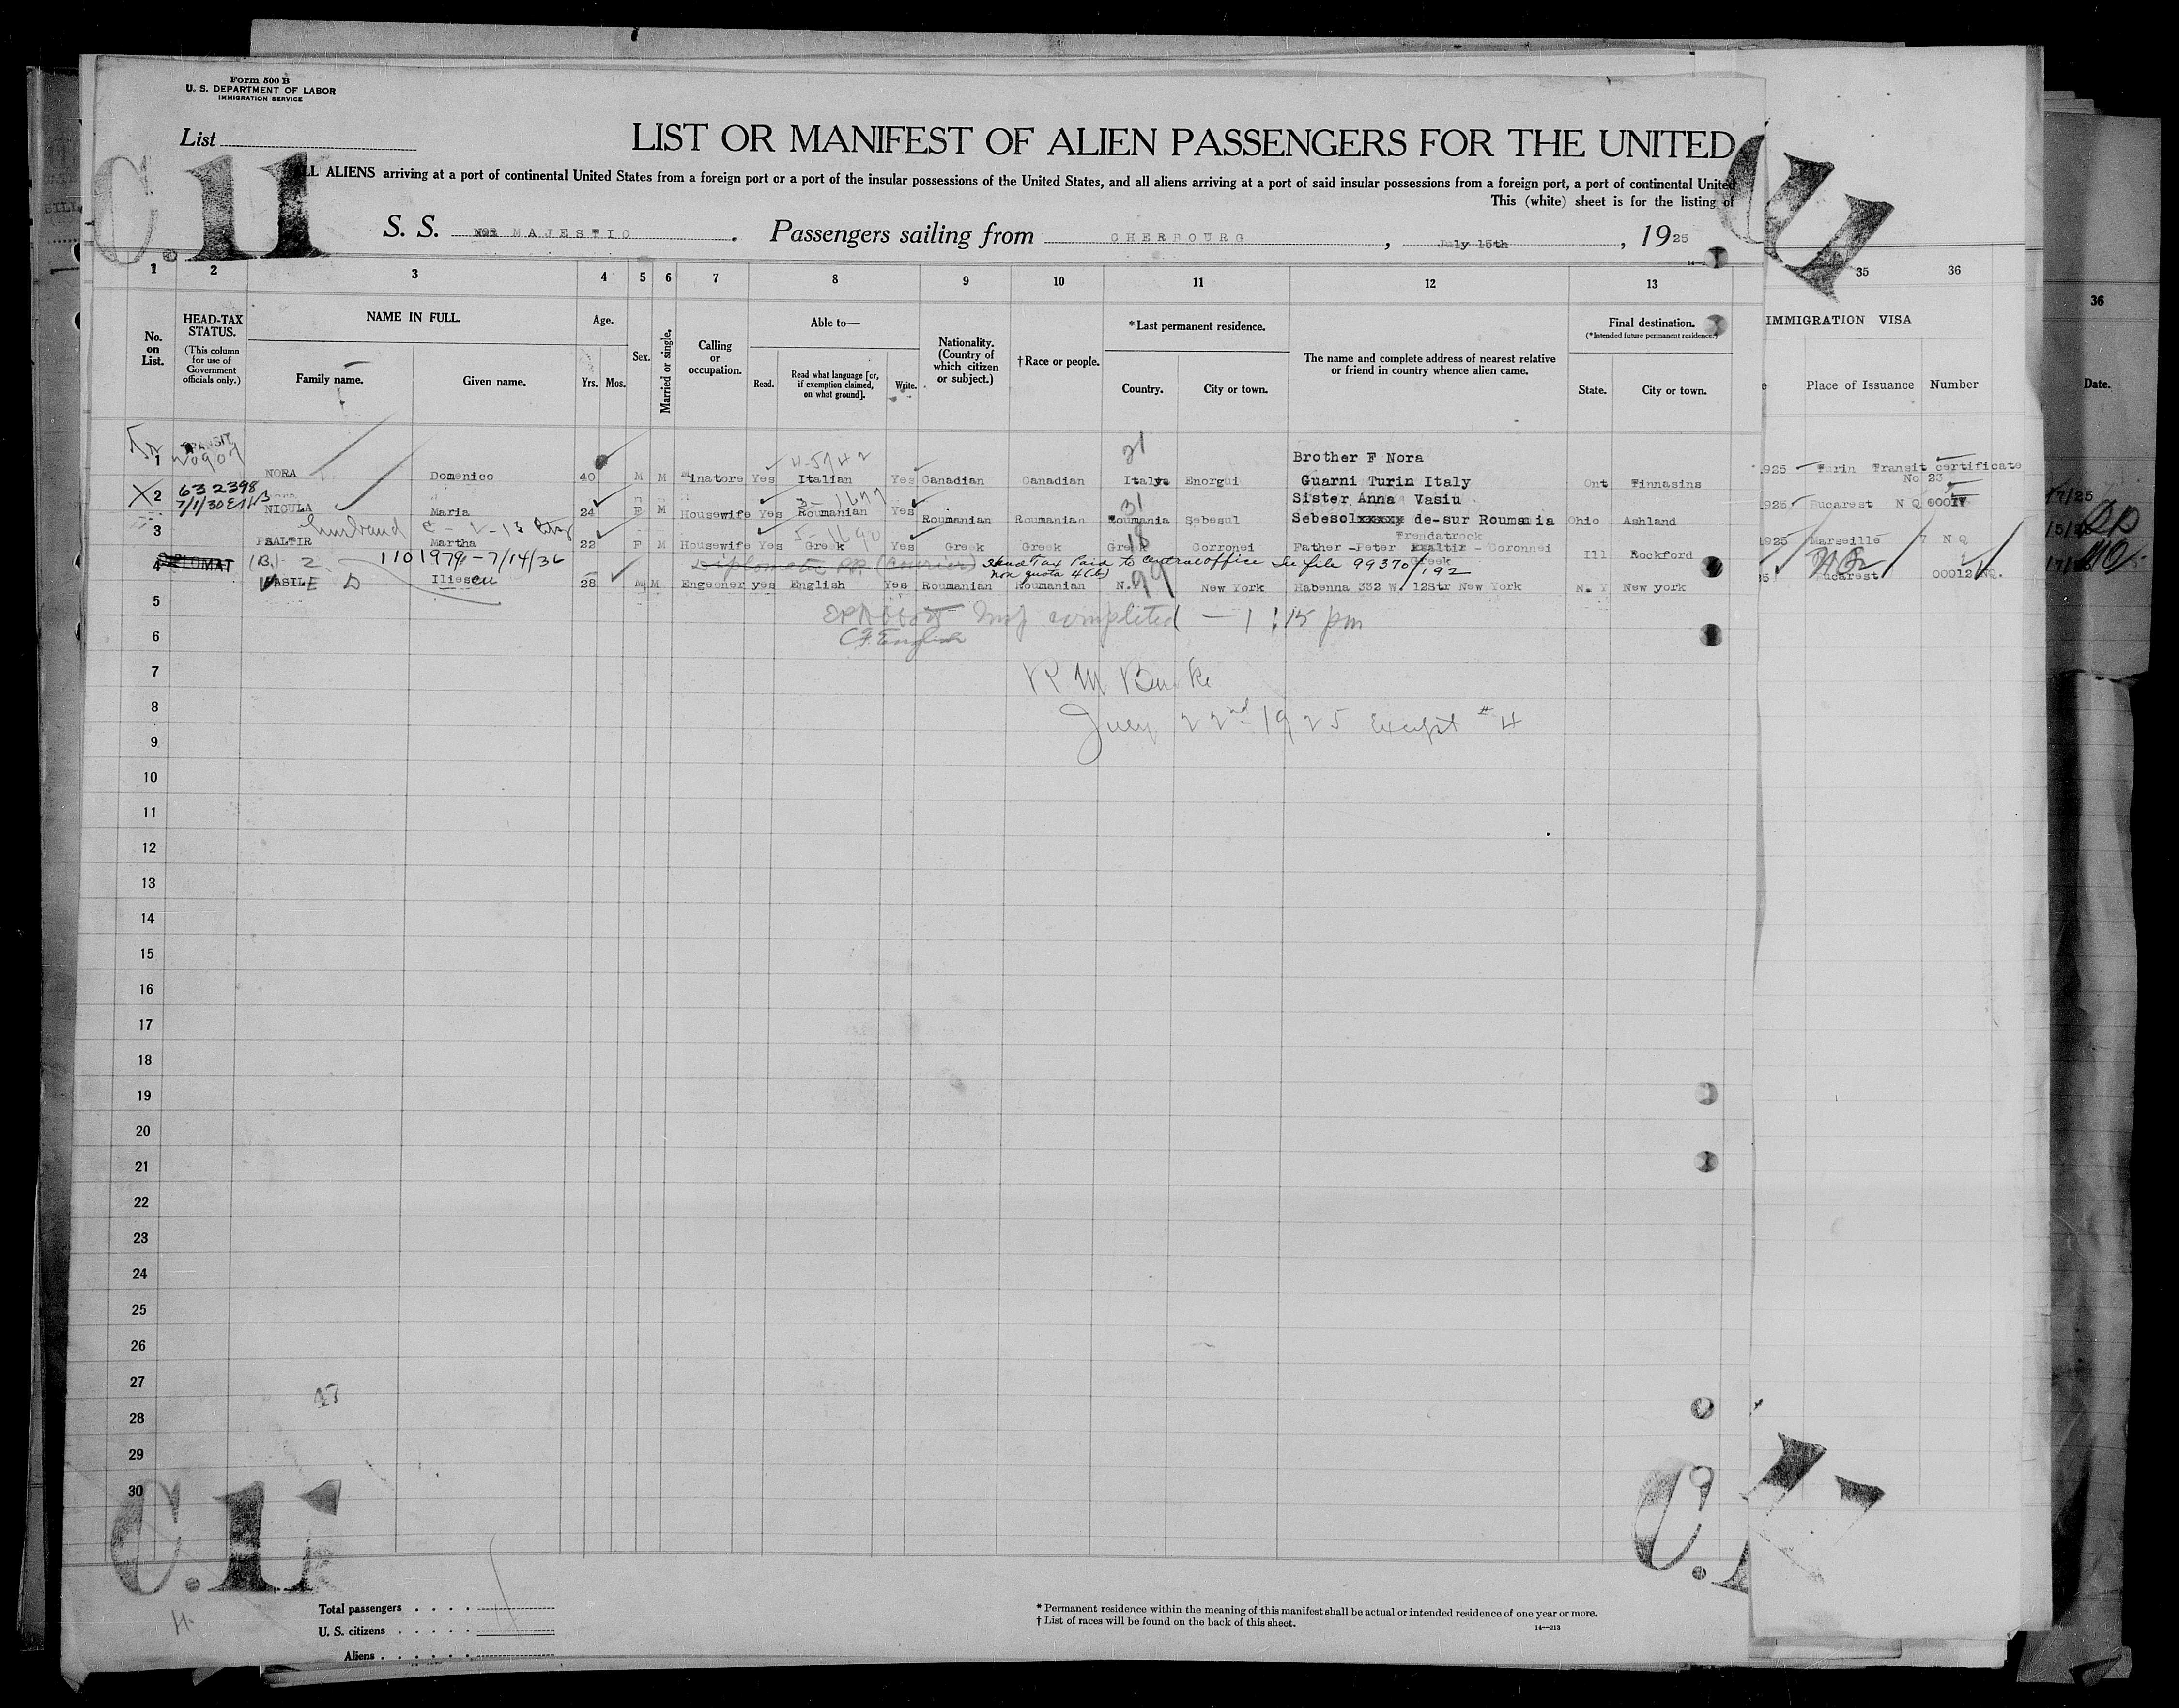 Form 500 B
U. S. DEPARTMENT OF LABOR
IMMIGRATION SERVICE
List
C.11
LIST OR MANIFEST OF ALIEN PASSENGERS FOR THE UNITED
ALL ALIENS arriving at a port of continental United States from a foreign port or a port of the insular possessions of the United States, and all aliens arriving at a port of said insular possessions from a foreign port, a port of continental United
This (white) sheet is for the listing of
S. S. MAJESTIC. Passengers sailing from CHERBOURG, July 15th, 1925
1 2 3 4 5 6 7 8 9 10 11 12 13 35 36
No. on List.
HEAD-TAX STATUS. (This column for use of Government officials only.)
NAME IN FULL.
Family name. Given name.
Age. Yrs. Mos.
Sex.
Married or single.
Calling or occupation.
Able to—
Read. Read what language [or, if exemption claimed, on what ground]. Write.
Nationality. (Country of which citizen or subject.)
† Race or people.
* Last permanent residence.
Country. City or town.
The name and complete address of nearest relative or friend in country whence alien came.
Final destination. (*Intended future permanent residence.)
State. City or town.
IMMIGRATION VISA
Place of Issuance Number
36
Date.
4-5742 21
Brother F Nora
1 NORA Domenico 40 M M Minatore Yes Italian Yes Canadian Canadian Italy Enorgui Guarni Turin Italy Ont Tinnasins 1925 Turin Transit certificate
No 23
632398
7/1/30
3-1677 31
Sister Anna Vasiu
2 NICULA Maria 24 F M Housewife Yes Roumanian Yes Roumanian Roumanian Roumania Sebesul Sebesol xxxxx de-sur Roumania Ohio Ashland 1925 Bucarest N Q 00017
17/25
husband
5-1690 18
Trendatrock
3 PSALTIR Martha 22 F M Housewife Yes Greek Yes Greek Greek Greek Corronei Father -Peter - Coronnei Ill Rockford 1925 Marseille 7 N Q
Greek
DIPLOMAT (B) 2 1101979-7/14/36 Diplomatic (Courier) Head Tax Paid to Central office In file 99370/192
non quota 4(b) 99
4 VASILE D Iliescu 28 M M Engeener yes English Yes Roumanian Roumanian N. New York Habenna 332 W. 12Str New York N. Y New york Bucarest 00012 NQ.
5
Insp completed — 1:15 pm
6 C.F. English
7 R M Burke
8 July 22nd-1925 Except #4
9
10
11
12
13
14
15
16
17
18
19
20
21
22
23
24
25
26
27
47
28
29
30
C.11
Total passengers
U. S. citizens
Aliens
* Permanent residence within the meaning of this manifest shall be actual or intended residence of one year or more.
† List of races will be found on the back of this sheet.
14—213